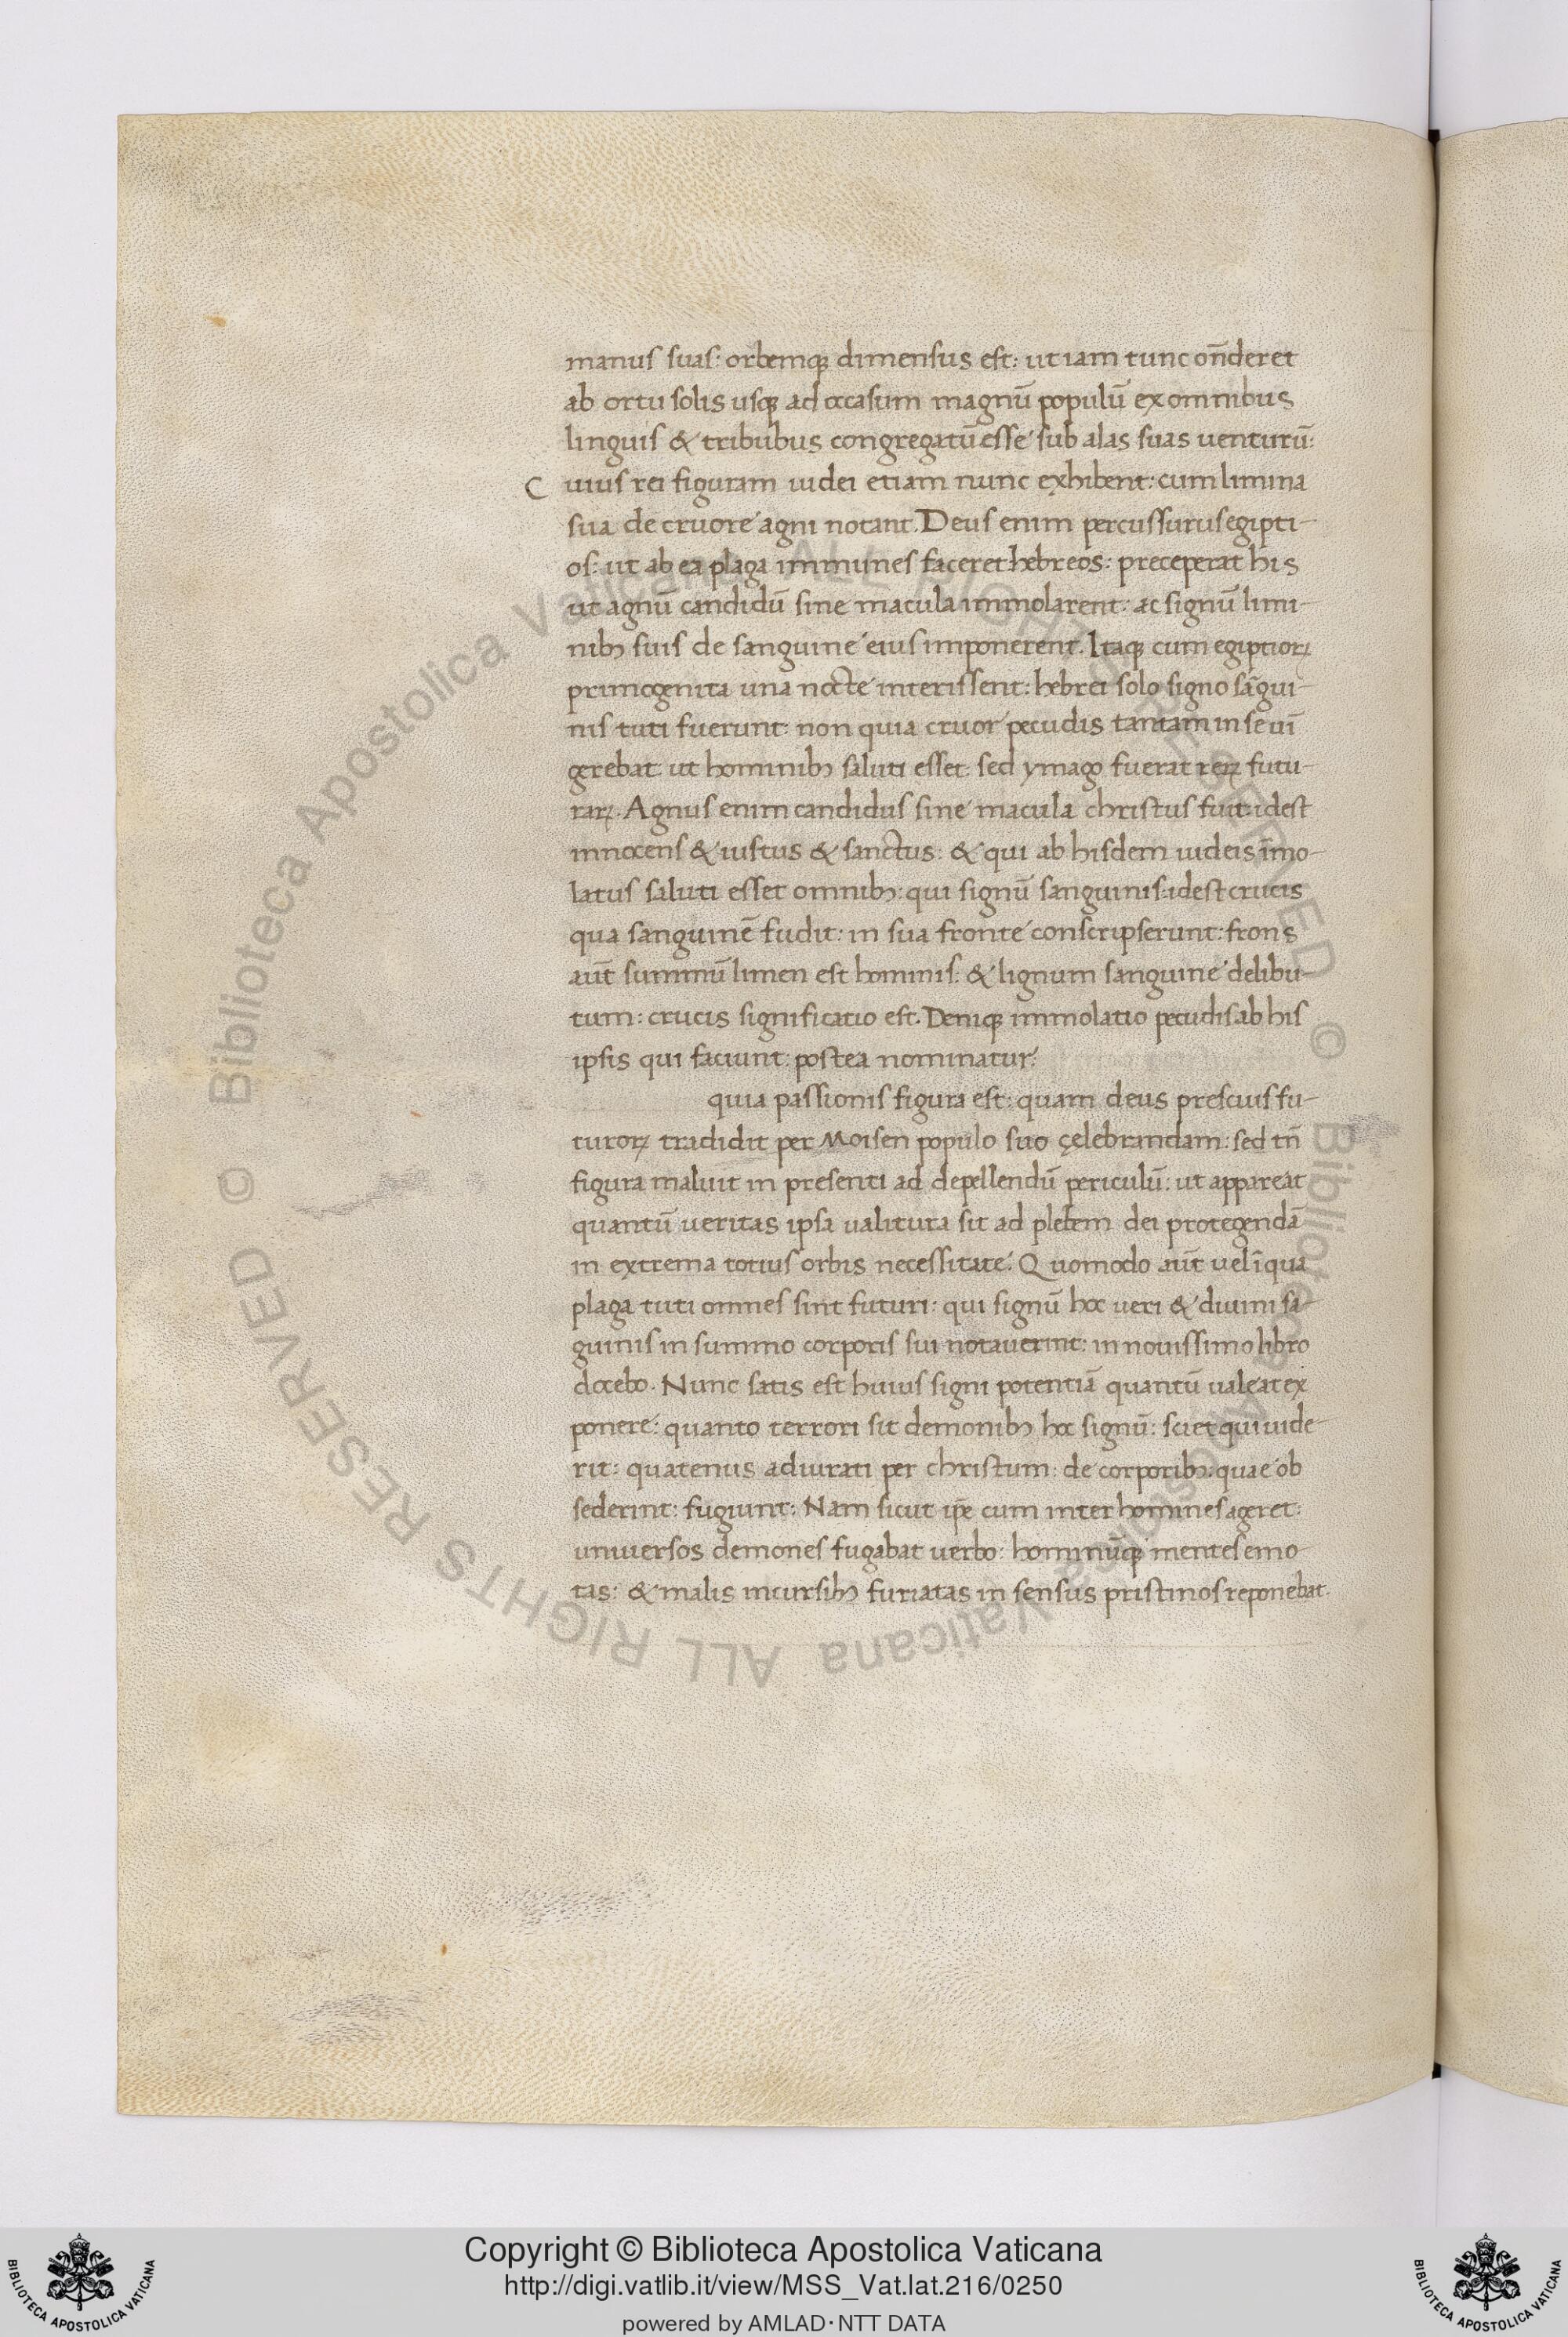 manus suas: orbemqꝫ dimensus est: ut iam tunc on̄deret
ab ortu solis usqꝫ ad occasum magnū populū ex omnibus
linguis & tribubus congregatū esse sub alas suas uenturū:
C uius rei figuram iudei etiam nunc exhibent: cum limina
sua de cruore agni notant. Deus enim percussurus egipti-
os: ut ab ea plaga immunes faceret hebreos: preceperat his
ut agnū candidū sine macula immolarent: ac signū limi-
nibꝫ suis de sanguine eius imponerent. Itaqꝫ cum egiptioꝝ
primogenita una nocte interissent: hebrei solo signo sāgui-
nis tuti fuerunt: non quia cruor pecudis tantam in se uī
gerebat ut hominibꝫ saluti esset: sed ymago fuerat reꝝ futu-
raꝝ. Agnus enim candidus sine macula christus fuit: idest
innocens & iustus & sanctus: & qui ab hisdem iudeis īmo-
latus saluti esset omnibꝫ: qui signū sanguinis: idest crucis
qua sanguinē fudit: in sua fronte conscripserunt: frons
aūt summū limen est hominis: & lignum sanguine delibu-
tum: crucis significatio est. Deniqꝫ immolatio pecudis ab his
ipsis qui faciunt postea nominatur:
quia passionis figura est: quam deus prescius fu-
turoꝝ tradidit per Moisen populo suo çelebrandam: sed tn̄
figura maluit in presenti ad depellendū periculū: ut appareat
quantū ueritas ipsa ualitura sit ad plebem dei protegendā
in extrema totius orbis necessitate. Quomodo aūt uel ī qua
plaga tuti omnes sint futuri: qui signū hoc ueri & diuini sā-
guinis in summo corporis sui notauerint: in nouissimo libro
docebo. Nunc satis est huius signi potentiā quantū ualeat ex
ponere: quanto terrori sit demonibꝫ hoc signū: sciet qui uide-
rit: quatenus adiurati per christum: de corporibꝫ: quae ob
sederint: fugiunt: Nam sicut ip̄e cum inter homines ageret:
uniuersos demones fugabat uerbo: hominūqꝫ mentes emo-
tas: & malis incursibꝫ furiatas in sensus pristinos reponebat.
© Biblioteca Apostolica Vaticana ALL RIGHTS RESERVED
© Biblioteca Apostolica Vaticana ALL RIGHTS RESERVED
Copyright © Biblioteca Apostolica Vaticana
http://digi.vatlib.it/view/MSS_Vat.lat.216/0250
powered by AMLAD·NTT DATA
BIBLIOTECA APOSTOLICA VATICANA
BIBLIOTECA APOSTOLICA VATICANA